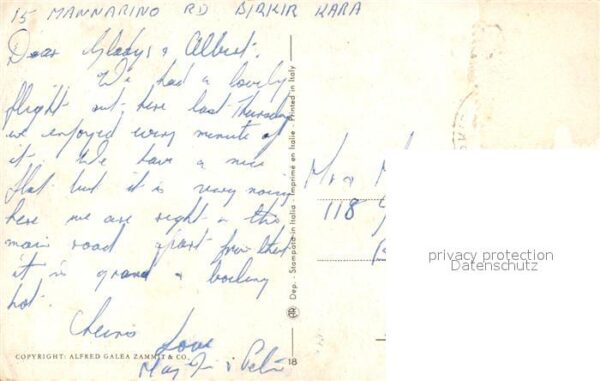 15 MANNARINO RD BIRKIR KARA
Dear Gladys & Albert.
We had a lovely
flight out here last Thursday
we enjoyed every minute of
it. We have a nice
flat but it is very noisy
here we are right on the
main road apart from that
it is grand & boiling
hot.
Love
May
COPYRIGHT: ALFRED GALEA ZAMMIT & CO.
18
Dep. - Stampato in Italia - Imprimé en Italie - Printed in Italy
118
privacy protection
Datenschutz